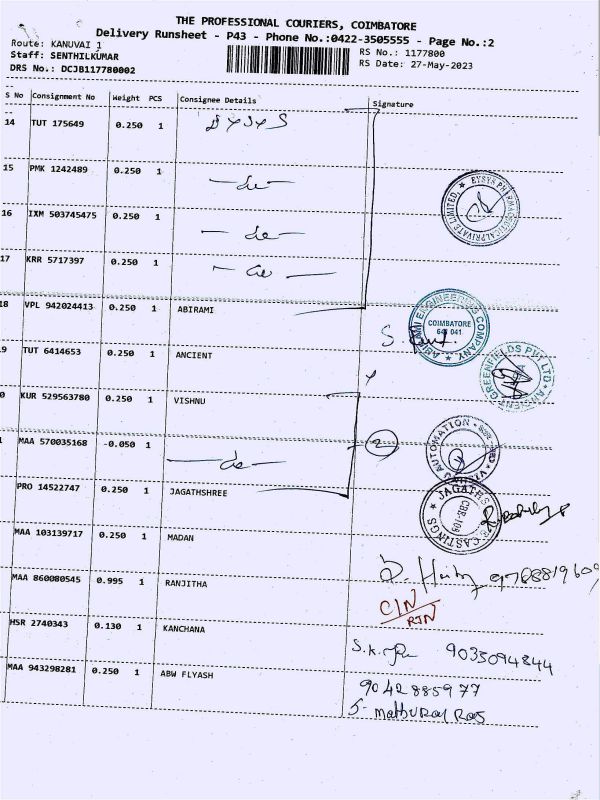 THE PROFESSIONAL COURIERS, COIMBATORE
Delivery Runsheet - P43 - Phone No.:0422-3505555 - Page No.:2
Route: KANUVAI 1
RS No.: 1177800
Staff: SENTHILKUMAR
RS Date: 27-May-2023
DRS No.: DCJB117780002
S No Consignment No Weight PCS Consignee Details Signature
14 TUT 175649 0.250 1
15 PMK 1242489 0.250 1 —do—
16 IXM 503745475 0.250 1 —do—
17 KRR 5717397 0.250 1 —do—
18 VPL 942024413 0.250 1 ABIRAMI
COIMBATORE
641 041
ENGINEERING COMPANY
9 TUT 6414653 0.250 1 ANCIENT
ANCIENT GREENFIELDS PVT LTD
0 KUR 529563780 0.250 1 VISHNU
1 MAA 570035168 -0.050 1 —do— 2
AUTOMATION
PRO 14522747 0.250 1 JAGATHSHREE
CASTINGS
MAA 103139717 0.250 1 MADAN
9768819609
MAA 860080545 0.995 1 RANJITHA
C/N
RTN
HSR 2740343 0.130 1 KANCHANA
S.K. 9035094844
MAA 943298281 0.250 1 ABW FLYASH
9042885977